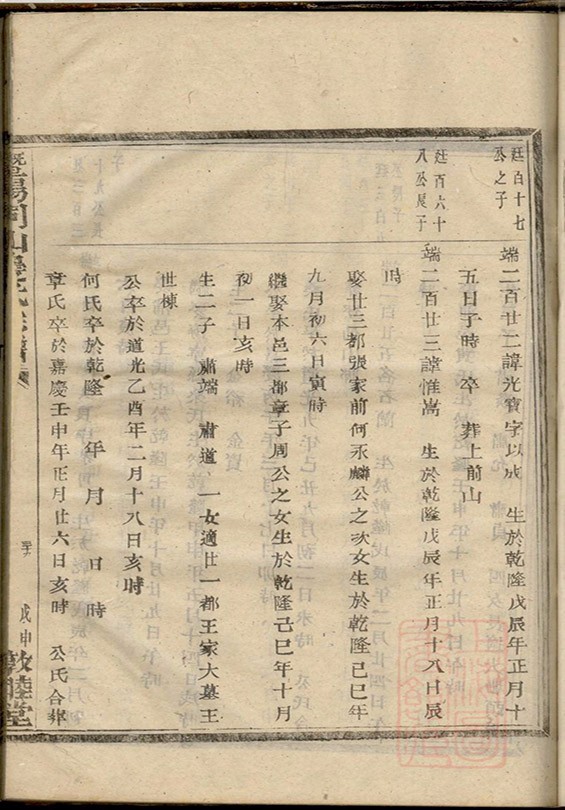 廷百十七
公之子
端二百廿二諱光寶字以成　生於乾隆戊辰年正月十
五日子時　卒　葬上前山
廷百六十
八公長子
端二百廿三諱惟嵩　生於乾隆戊辰年正月十八日辰
時
娶廿三都張家前何永麟公之次女生於乾隆己巳年
九月初六日寅時
繼娶本邑三都章子周公之女生於乾隆己巳年十月
初一日亥時
生二子　肅端　肅道　一女適廿一都王家大墓王
世棟
公卒於道光乙酉年二月十八日亥時
何氏卒於乾隆　年　月　日　時
章氏卒於嘉慶壬申年正月廿六日亥時　公氏合葬
戊申
敦睦堂